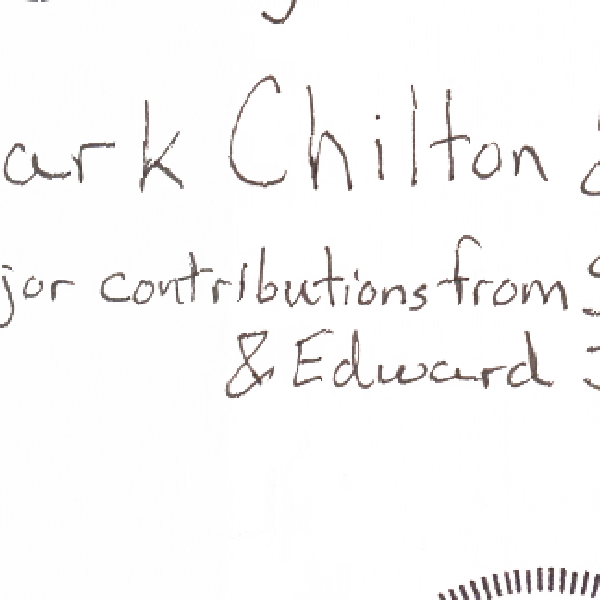 ark Chilton &
jor contributions from S
& Edward J